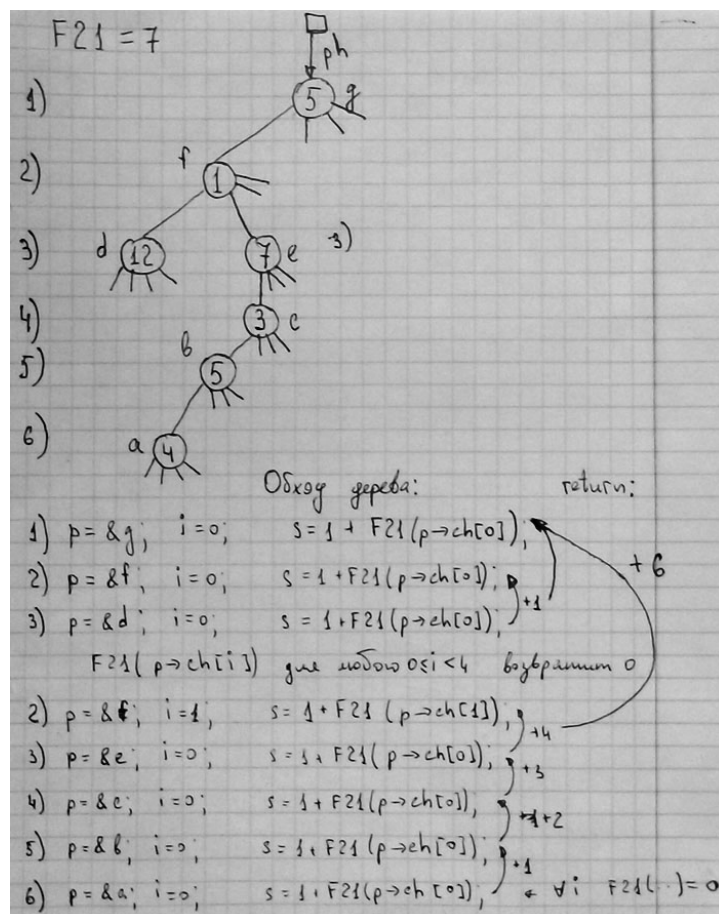 F21 = 7
ph
1) 5 g
f
2) 1
3) d 12 7 e 3)
4) 3 c
в
5) 5
6) a 4
Обход дерева: return:
1) p=&g; i=0; s=1 + F21(p→ch[0]);
+6
2) p=&f; i=0; s=1+F21(p→ch[0]);
+1
3) p=&d; i=0; s=1+F21(p→ch[0]);
F21(p→ch[i]) для любого 0≤i<4 возвратит 0
2) p=&f; i=1; s=1+F21(p→ch[1]);
+4
3) p=&e; i=0; s=1+F21(p→ch[0]);
+3
4) p=&c; i=0; s=1+F21(p→ch[0]);
+2
5) p=&в; i=0; s=1+F21(p→ch[0]);
+1
6) p=&a; i=0; s=1+F21(p→ch[0]); ← ∀i F21(..)=0